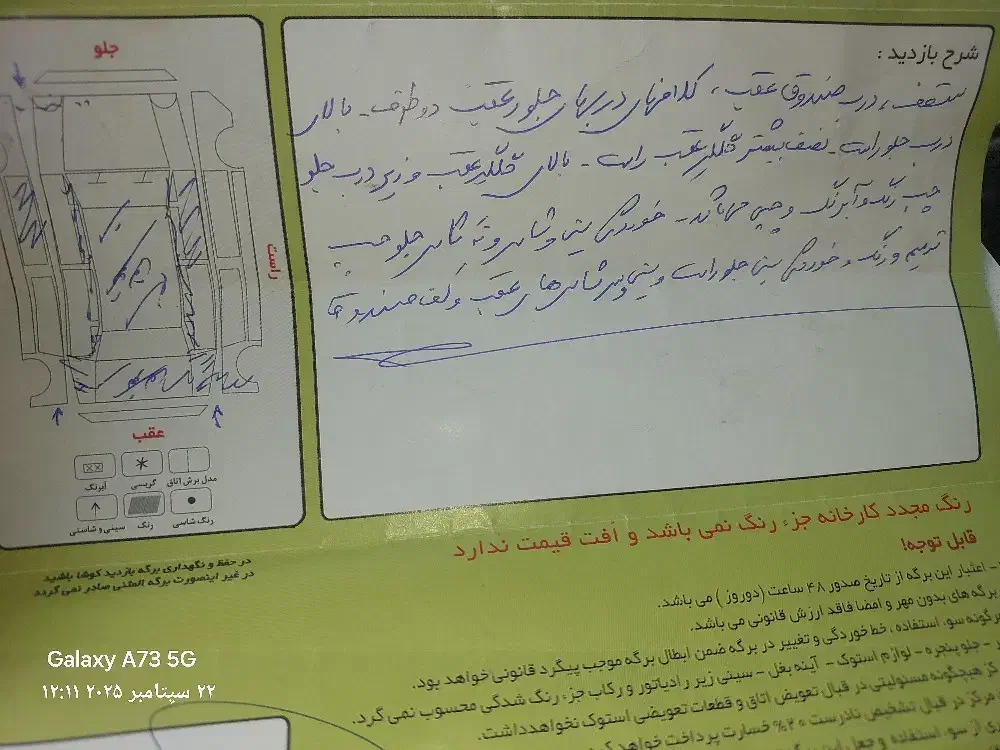 شرح بازدید :
سقف، درب صندوق عقب، کلافهای دربهای جلو و عقب دو طرف - بالای
درب جلو راست - نصف بیشتر گلگیر عقب راست - بالای گلگیر عقب و زیر درب جلو
چپ رنگ و آبرنگ و چپی می‌باشد - خوردگی سینی و شاسی و ته شاسی جلو چپ
ترمیم و رنگ و خوردگی سینی جلو راست و سینی و سرشاسی های عقب و کف صندوق
جلو
راست
عقب
مدل برش اتاق
گریسی
آبرنگ
رنگ شاسی
رنگ
سینی و شاسی
در حفظ و نگهداری برگه بازدید کوشا باشید
در غیر اینصورت برگه المثنی صادر نمی گردد
رنگ مجدد کارخانه جزء رنگ نمی باشد و اُفت قیمت ندارد
قابل توجه!
- اعتبار این برگه از تاریخ صدور ۴۸ ساعت (دوروز) می باشد.
برگه های بدون مهر و امضا فاقد ارزش قانونی می باشد.
هرگونه سوء استفاده، خط خوردگی و تغییر در برگه ضمن ابطال برگه موجب پیگرد قانونی خواهد بود.
- جلو پنجره - لوازم استوک - آینه بغل - سینی زیر رادیاتور و رکاب جزء رنگ شدگی محسوب نمی گردد.
مرکز هیچگونه مسئولیتی در قبال تعویض اتاق و قطعات تعویضی استوک نخواهد داشت.
مرکز در قبال تشخیص نادرست ۲۰% خسارت پرداخت خواهد
Galaxy A73 5G
۲۲ سپتامبر ۲۰۲۵ ۱۲:۱۱